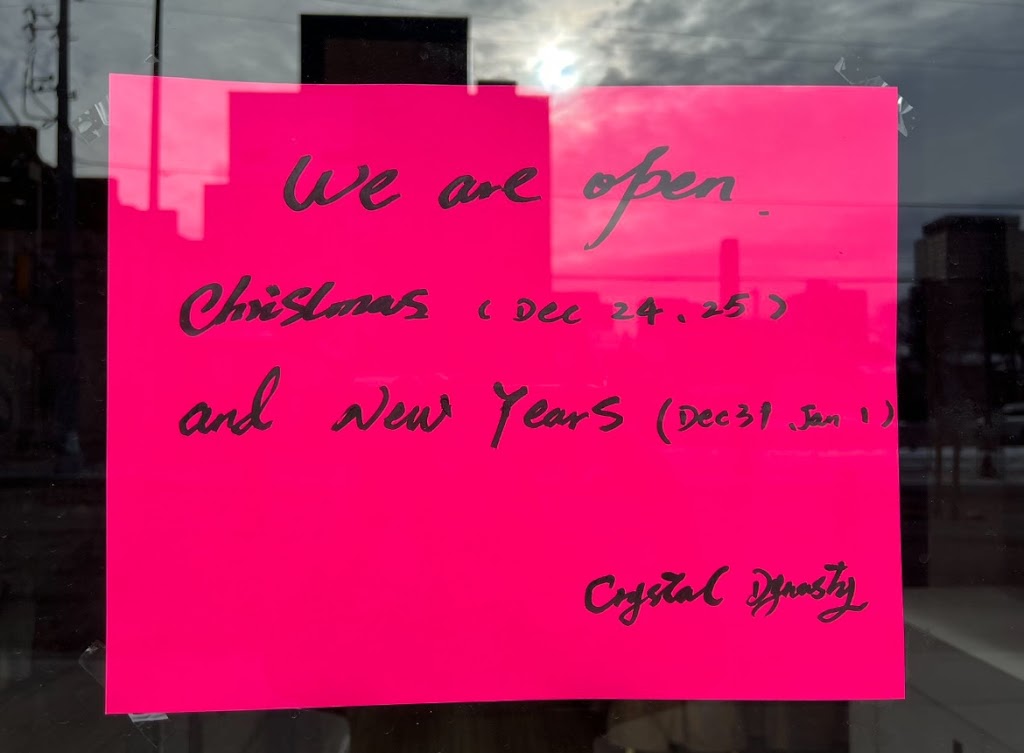 We are open.
Christmas (Dec 24, 25)
and New Years (Dec 31, Jan 1)
Crystal Dynasty